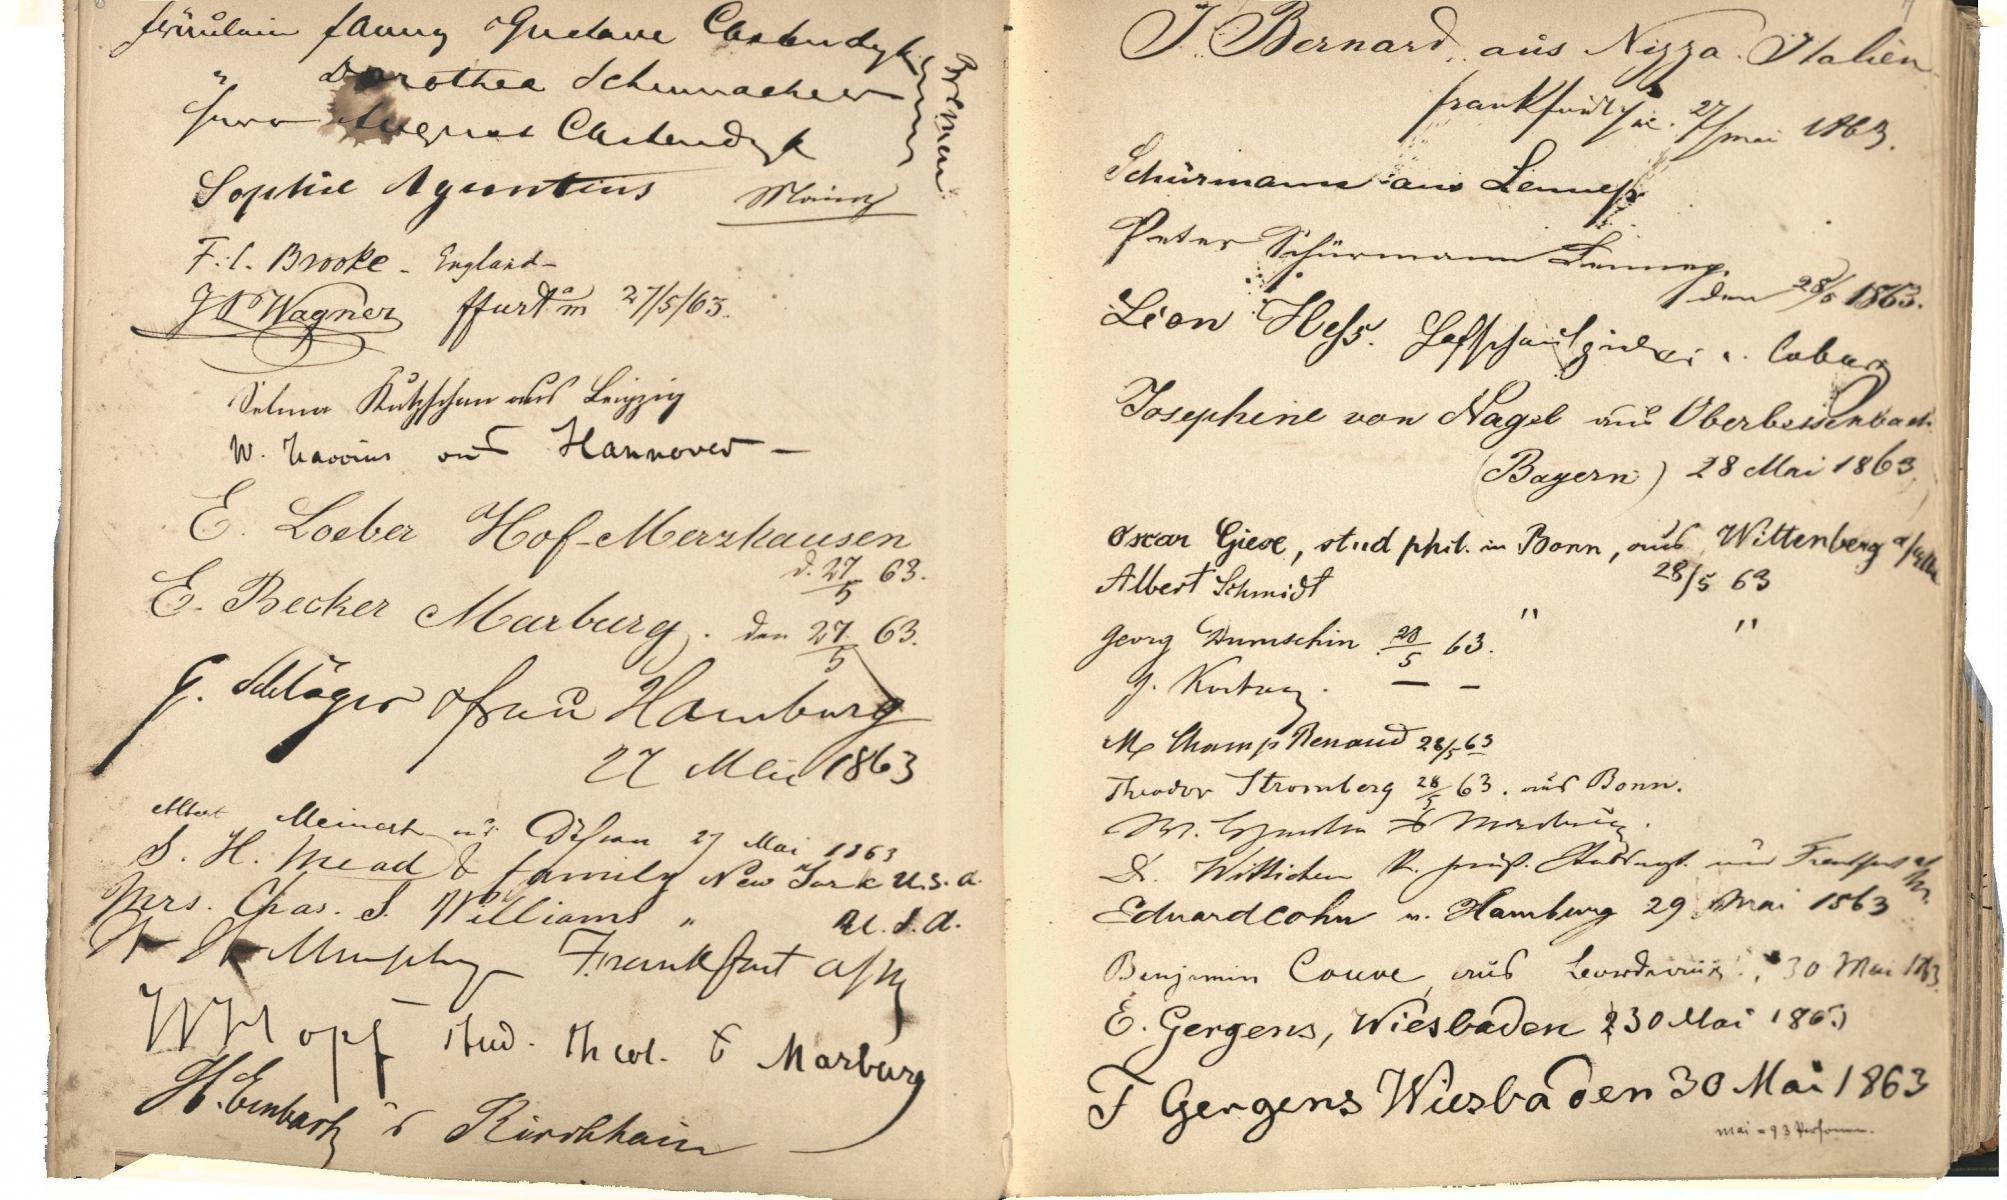 Fräulein Fanny Gustave Castendyk
" Dorothea Schumacher
Herr August Castendyk
Bremen
Sophie Mainz
F. C. Brooke - England -
Wagner ffurt a m 27/5/63.
Selma aus Leipzig
W. aus Hannover -
E. Loeber Hof-Merzhausen
d. 27/5 63.
E. Becker Marburg. den 27/5 63.
G. Schläger & Frau Hamburg
27 Mai 1863
Albert Meinert aus Dessau 27 Mai 1863
S. H. Mead & family New York U.S.A.
Mrs. Chas. S. Williams " U.S.A.
Murphy Frankfurt a/M
W Klopf stud. theol. Marburg
H. Kirchhain
J. Bernard, aus Nizza. Italien
Frankfurt 27/Mai 1863.
Schürmann aus Lennep
Peter Schürmann Lennep.
den 28/5 1863.
Léon Hess. Hofschauspieler a. Coburg
Josephine von Nagel aus Oberbessenbach
(Bayern) 28 Mai 1863
Oscar Giese, stud phil. in Bonn, aus Wittenberg
Albert Schmidt 28/5 63
Georg 28/5 63. " "
J. — —
Champ Renaud 28/5 63
Theodor Stromberg 28/5 63. aus Bonn.
Dr. Wittichen aus Frankfurt a/M.
Eduard Cohn a. Hamburg 29 Mai 1863
Benjamin Couve, aus 30 Mai 1863.
E. Gergens, Wiesbaden 30 Mai 1863
F Gergens Wiesbaden 30 Mai 1863
Mai = 93 Personen.